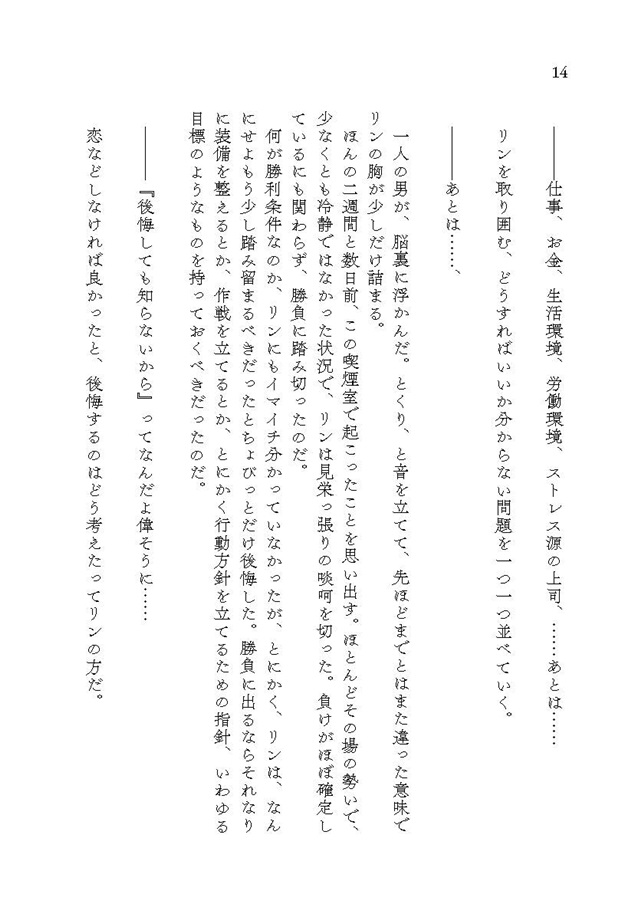 14
――仕事、お金、生活環境、労働環境、ストレス源の上司、……あとは……
リンを取り囲む、どうすればいいか分からない問題を一つ一つ並べていく。
――あとは……、
一人の男が、脳裏に浮かんだ。とくり、と音を立てて、先ほどまでとはまた違った意味で
リンの胸が少しだけ詰まる。
ほんの二週間と数日前、この喫煙室で起こったことを思い出す。ほとんどその場の勢いで、
少なくとも冷静ではなかった状況で、リンは見栄っ張りの啖呵を切った。負けがほぼ確定し
ているにも関わらず、勝負に踏み切ったのだ。
何が勝利条件なのか、リンにもイマイチ分かっていなかったが、とにかく、リンは、なん
にせよもう少し踏み留まるべきだったとちょびっとだけ後悔した。勝負に出るならそれなり
に装備を整えるとか、作戦を立てるとか、とにかく行動方針を立てるための指針、いわゆる
目標のようなものを持っておくべきだったのだ。
――『後悔しても知らないから』ってなんだよ偉そうに……
恋などしなければ良かったと、後悔するのはどう考えたってリンの方だ。